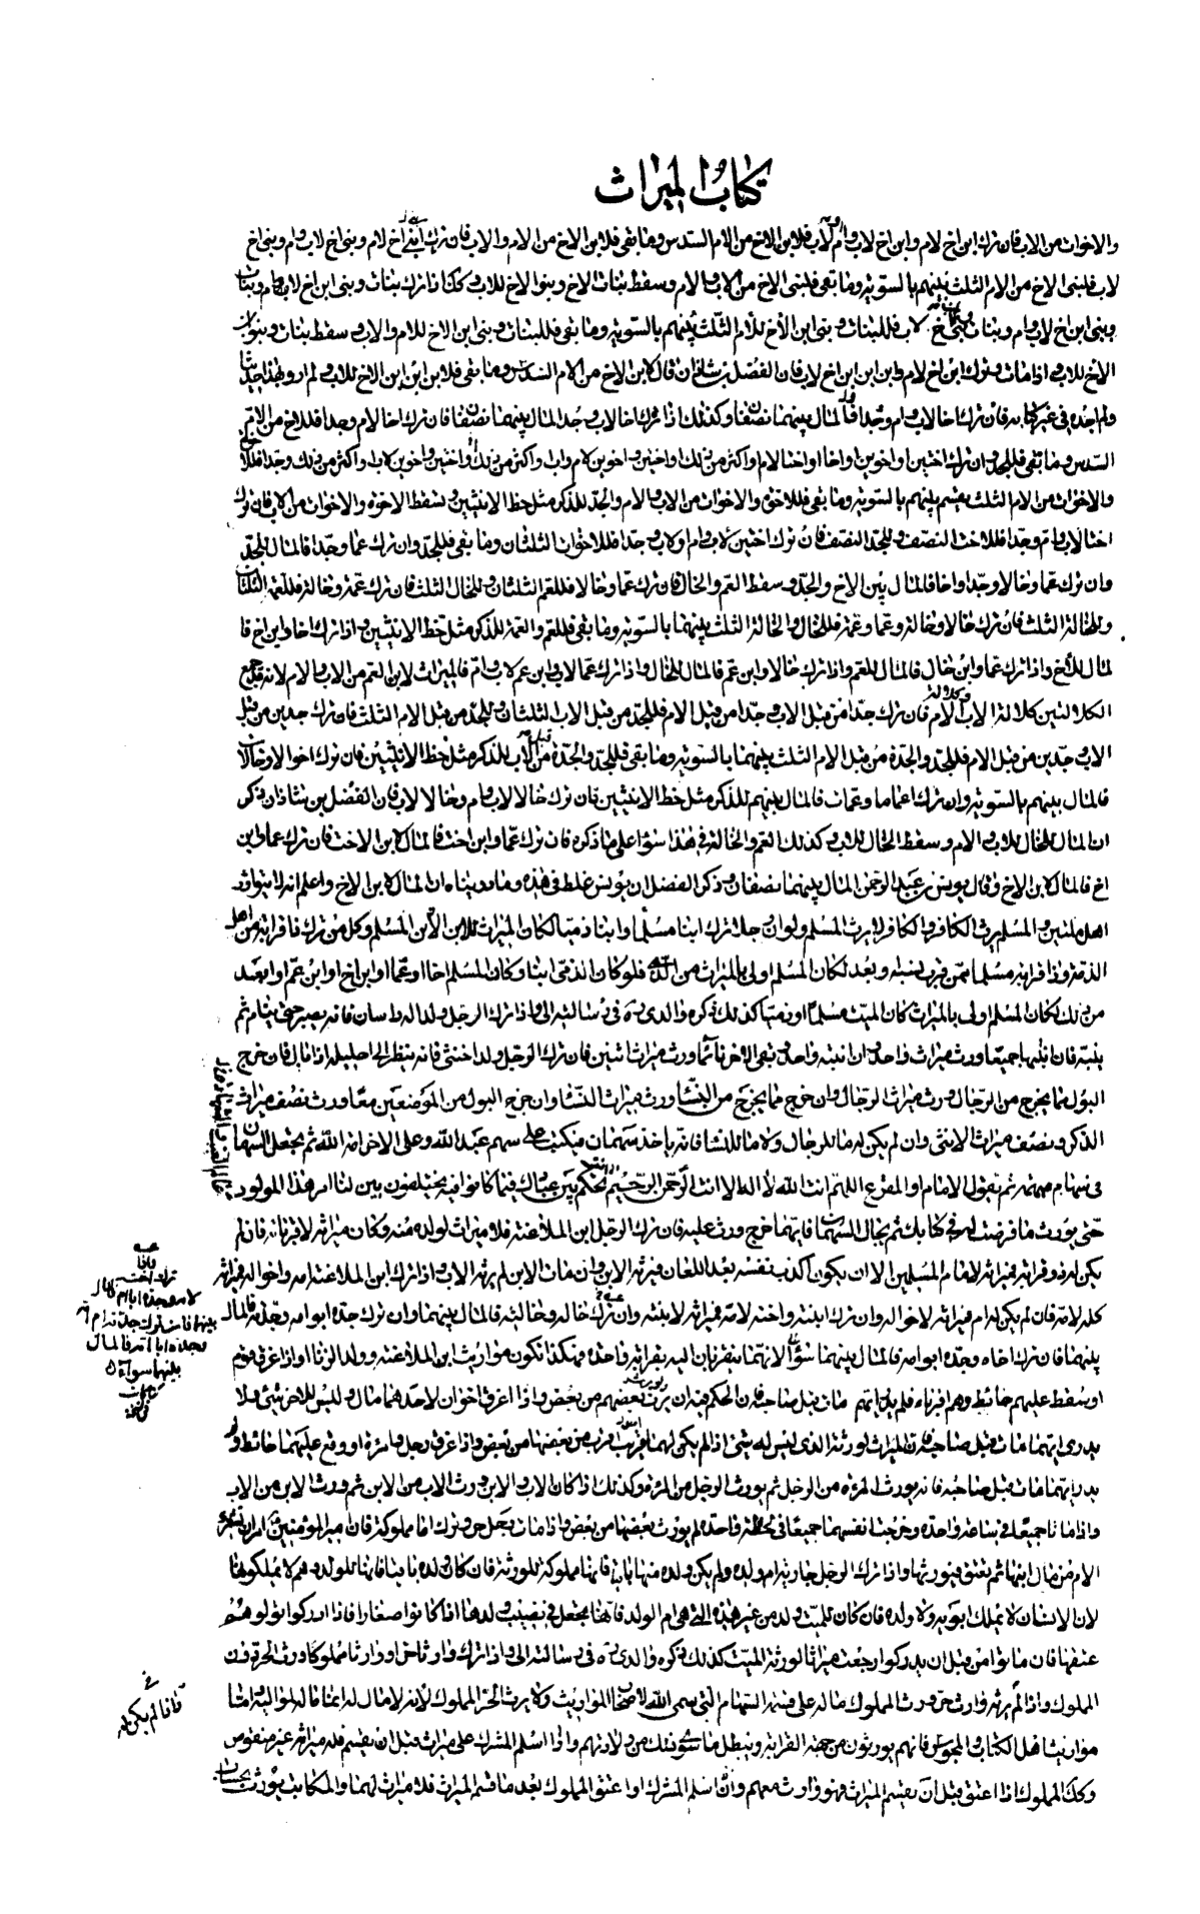 كتاب الميراث
والاخوات من الاب فان ترك ابن اخ لام وابن اخ لاب وام لاب فلابن الاخ من الام السدس وما بقى فلابن الاخ من الام والاب فان ترك اخ لام وبنى اخ لاب وام وبنى اخ
لاب فلبنى الاخ من الام الثلث بينهم بالسوية وما بقى فلبنى الاخ من الاب والام وسقط بنات الاخ وبنوا الاخ للاب وكذا اذا ترك بنات وبنى ابن اخ لاب وام وبنات
وبنى ابن اخ لاب وام وبنات وبنى اخ لاب فللبنات وبنى ابن الاخ للام الثلث بينهم بالسوية وما بقى فللبنات وبنى ابن الاخ للام والاب وسقط بنات وبنو ابن
الاخ للاب واذا مات وترك ابن اخ لام وابن ابن ابن اخ لاب فان الفضل بن شاذان قال لابن الاخ من الام السدس وما بقى فلابن ابن ابن الاخ للاب ولم ارو بهذا حديثا
ولم اجده فى غير كتابه فان ترك اخا لاب وام وجدا فالمال بينهما نصفان وكذلك اذا ترك اخا لاب وجدا المال بينهما نصفان فان ترك اخا لام وجدا فللاخ من الام
السدس وما بقى فللجد وان ترك اختين او اخوين او اخا او اختا لام واكثر من ذلك او اختين واخوين لام واب واكثر من ذلك واختين واخوين لاب واكثر من ذلك وجدا فللاخ
والاخوات من الام الثلث يقسم بينهم بالسوية وما بقى فللاخوة والاخوات من الاب والام والجد للذكر مثل حظ الانثيين وتسقط الاخوة والاخوات من الاب فان ترك
اختا لاب وام وجدا فللاخت النصف وللجد النصف فان ترك اختين لاب وام او لاب وجدا فللاختان الثلثان وما بقى فللجد وان ترك عما وجدا فالمال للجد
وان ترك عما وخالا وجدا واخا فالمال بين الاخ والجد وسقط العم والخال فان ترك عما وخالا فللعم الثلثان وللخال الثلث فان ترك عمة وخالة فللعمة الثلثان
وللخالة الثلث فان ترك خالا وخالة وعما وعمة فللخال والخالة الثلث بينهما بالسوية وما بقى فللعم والعمة للذكر مثل حظ الانثيين واذا ترك اخا وابن اخ فا
لمال للاخ واذا ترك عما وابن خال فالمال للعم واذا ترك خالا وابن عم فالمال للخال واذا ترك عما لاب وابن عم لاب وام فالميراث لابن العم من الاب والام لانه قد جمع
الكلالتين كلالة الاب وكلالة الام فان ترك جدا من قبل الاب وجدا من قبل الام فللجد من قبل الاب الثلثان وللجد من قبل الام الثلث فان ترك جدين من قبل
الاب وجدين من قبل الام فللجد والجدة من قبل الام الثلث بينهما بالسوية وما بقى فللجد والجدة من قبل الاب للذكر مثل حظ الانثيين فان ترك اخوالا وخالات
فالمال بينهم بالسوية وان ترك اعماما وعمات فالمال بينهم للذكر مثل حظ الانثيين فان ترك خالا لاب وام وخالا لاب فان الفضل بن شاذان ذكر
ان المال للخال للاب والام وسقط الخال للاب وكذلك العم والخالة فى هذا سواء على ما ذكره فان ترك عما وابن اخت فالمال لابن الاخت فان ترك عما وابن
اخ فالمال لابن الاخ وقال يونس بن عبد الرحمن المال بينهما نصفان وذكر الفضل ان يونس غلط فى هذه وما رويناه ان المال لابن الاخ واعلم انه لا يتوارث
اهل ملتين والمسلم يرث الكافر والكافر لا يرث المسلم ولو ان رجلا ترك ابنا مسلما وابنا ذميا لكان الميراث للابن المسلم وكل من ترك ذا قرابة من اهل
الذمة وذا قرابة مسلما ممن قرب نسبه وبعد لكان المسلم اولى بالميراث من الذمى فلو كان الذمى ابنا وكان المسلم اخا او عما او ابن اخ او ابن عم او ابعد
من ذلك لكان المسلم اولى بالميراث كان الميت مسلما او ذميا كذلك ذكره والدى ره فى رسالته الى واذا ترك الرجل ولدا له راسان فانه يصبر حتى ينام ثم
ينبه فان انتبها جميعا ورث ميراث واحد وان انتبه واحد وبقى الاخر نائما ورث ميراث اثنين فان ترك الرجل ولدا خنثى فانه ينظر الى احليله اذا بال فان خرج
البول مما يخرج من الرجال ورث ميراث الرجال وان خرج مما يخرج من النساء ورث ميراث النساء وان خرج البول من الموضعين معا ورث نصف ميراث
الذكر ونصف ميراث الانثى وان لم يكن له ما للرجال ولا ما للنساء فانه ياخذ سهمان فيكتب على سهم عبد الله وعلى الاخر امة الله ثم يجعل السهمان
فى سهام مبهمة ثم يقول الامام او المقرع اللهم انت الله لا اله الا انت الرحمن الرحيم انت تحكم بين عبادك فيما كانوا فيه يختلفون بين لنا امر هذا المولود
حتى يورث ما فرضت له فى كتابك ثم يجال السهمان فايهما خرج ورث عليه فان ترك الرجل ابن الملاعنة فلا ميراث لولده منه وكان ميراثه لاقربائه فان لم
يكن له ذو قرابة فميراثه لامام المسلمين الا ان يكون اكذب نفسه بعد اللعان فيرثه الابن وان مات الابن لم يرثه الاب واذا ترك ابن الملاعنة امه واخواله فميراثه
كله لامه فان لم يكن له ام فميراثه لاخواله وان ترك ابنته واخته لامه فميراثه لابنته وان ترك خاله وخالته فالمال بينهما وان ترك جده ابو امه وجدته فالمال
بينهما فان ترك اخاه وجده ابو امه فالمال بينهما سواء لانهما يتقربان اليه بقرابة واحدة وهكذا تكون مواريث ابن الملاعنة وولد الزنا واذا غرق قوم
او سقط عليهم حائط وهم اقرباء فلم يدر ايهم مات قبل صاحبه فان الحكم فيه ان يورث بعضهم من بعض واذا اغرق اخوان لاحدهما مال وليس للاخر شىء ولا
يدرى ايهما مات قبل صاحبه فان الميراث لورثة الذى ليس له شىء اذا لم يكن لهما اقرب من بعضهما من بعض واذا غرق رجل وامرءة او وقع عليهما حائط ولم
يدر ايهما مات قبل صاحبه فانه يورث المرءة من الرجل ثم يورث الرجل من المرءة وكذلك اذا كان الاب والابن ورث الاب من الابن ثم ورث الابن من الاب
واذا ماتا جميعا فى ساعة واحدة وخرجت انفسهما جميعا فى لحظة واحدة لم يورث بعضهما من بعض واذا مات رجل حر وترك اما مملوكة فان امير المؤمنين امر ان تشترى
الام من مال ابنها ثم تعتق فيورثها واذا ترك الرجل جارية ام ولده ولم يكن ولده منها باقيا فانها مملوكة للورثة فان كان ولده باقيا فانها للولد وهم لا يملكونها
لان الانسان لا يملك ابويه ولا ولده فان كان للميت ولد من غير هذه التى هى ام الولد فانها يجعل فى نصيب ولدها اذا كانوا صغارا فاذا ادركوا تولوا هم
عتقها فان ماتوا من قبل ان يدركوا رجعت ميراثا لورثة الميت كذلك ذكره والدى ره فى رسالته الى واذا ترك وارثا حرا ووارثا مملوكا ورث الحر دون
المملوك واذا لم يرثه وارث حر ورث المملوك ماله على قسمة السهام التى سمى الله لاصحاب المواريث ولا يرث الحر المملوك لانه لا مال له انما ماله لمواليه واما
مواريث اهل الكتاب والمجوس فانهم يورثون من جهة القرابة ويبطل ما سوى ذلك من ولادتهم واذا اسلم المشرك على ميراث قبل ان يقسم فله ميراثه غير منقوص
وكذا المملوك اذا اعتق قبل ان يقسم الميراث فهو وارث معهم وان اسلم المشرك او اعتق المملوك بعد ما قسم الميراث فلا ميراث لهما والمكاتب يورث بحساب
فاذا لم يكن له